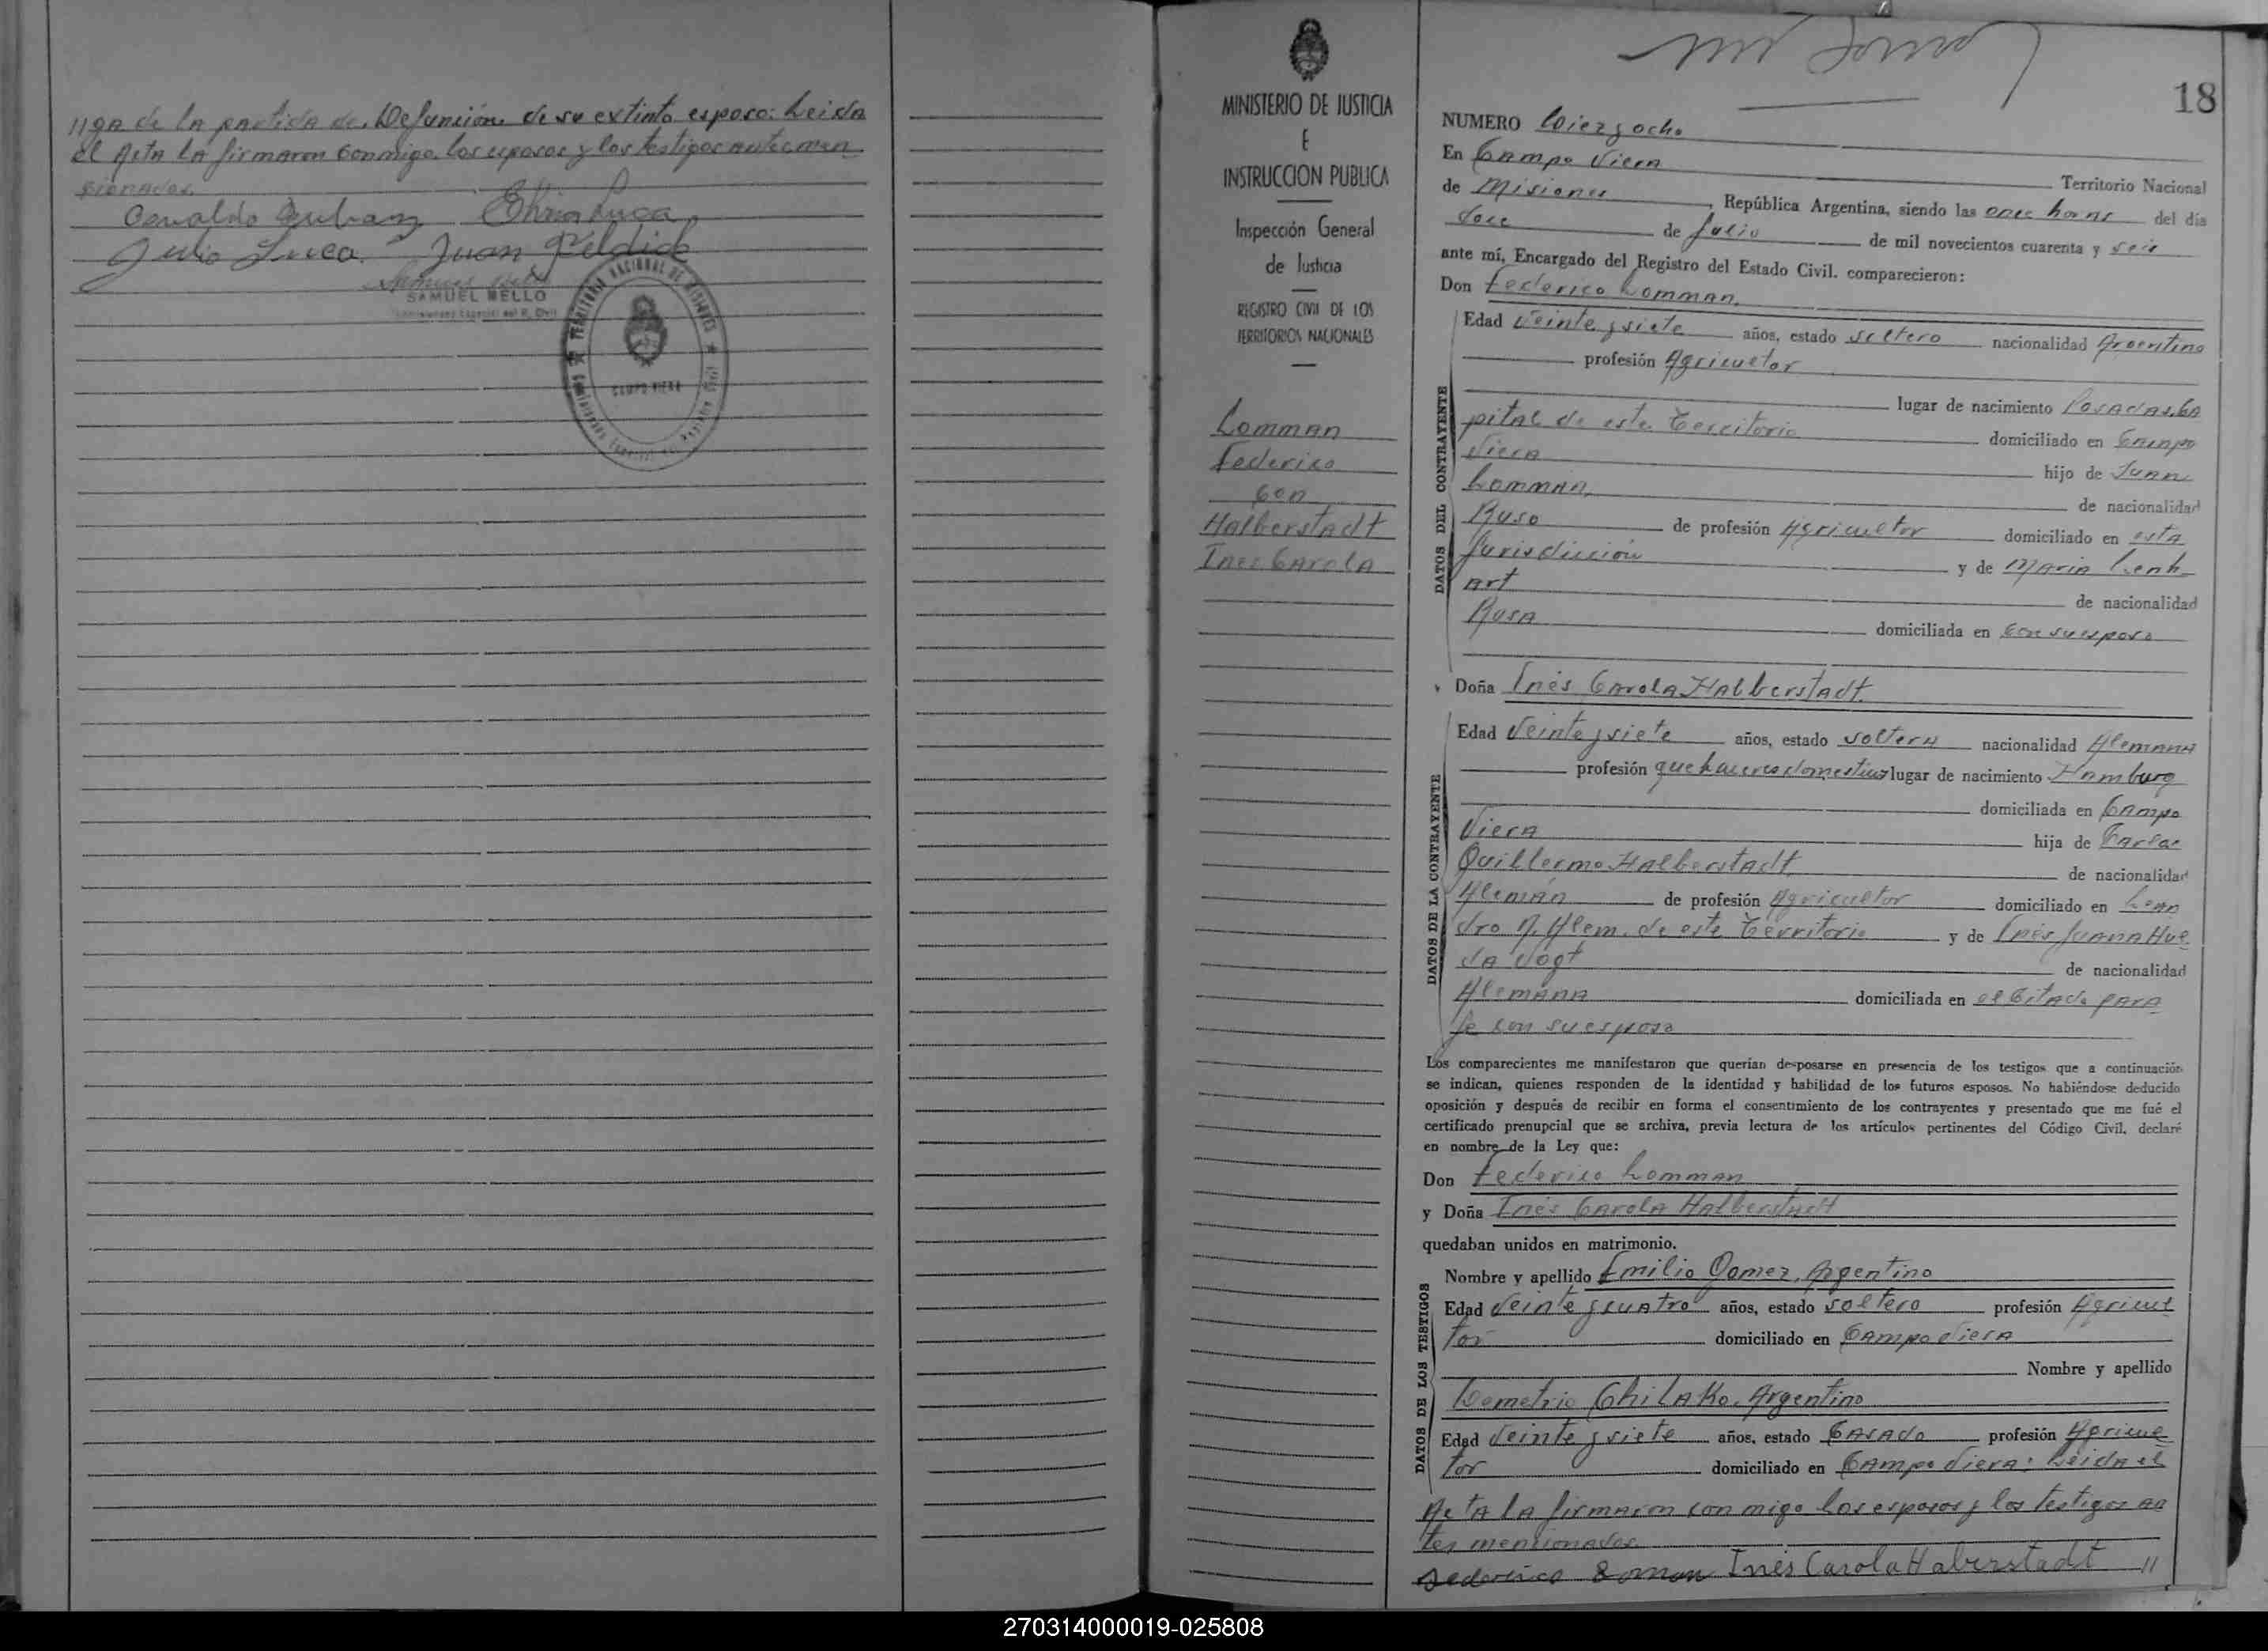 de la partida de Defunción de su extinto esposo: Leida
el Acta la firmaron conmigo los esposos y los testigos antes men
cionados.
Osvaldo
Julio Luca. Juan
SAMUEL MELLO
TERRITORIO NACIONAL DE MISIONES
CAMPO VIERA
MINISTERIO DE JUSTICIA
E
INSTRUCCION PUBLICA
Inspección General
de Justicia
REGISTRO CIVIL DE LOS
TERRITORIOS NACIONALES
Lomman
Federico
con
Halberstadt
Ines Carola
18
NUMERO Diez y ocho
En Campo Viera
Territorio Nacional
de Misiones, República Argentina, siendo las once horas del día
doce de Julio de mil novecientos cuarenta y seis
ante mí, Encargado del Registro del Estado Civil. comparecieron:
Don Federico Lomman.
DATOS DEL CONTRAYENTE
Edad Veinte y siete años, estado soltero nacionalidad Argentino
profesión Agricultor
lugar de nacimiento Posadas, Ca
pital de este Territorio domiciliado en Campo
Viera hijo de Juan
Lomman, de nacionalidad
Ruso de profesión Agricultor domiciliado en esta
Jurisdicción y de Maria Lenh
art de nacionalidad
Rusa domiciliada en con su esposo
Doña Inés Carola Halberstadt.
DATOS DE LA CONTRAYENTE
Edad Veinte y siete años, estado soltera nacionalidad Alemana
profesión quehaceres domesticos lugar de nacimiento Hamburg
domiciliada en Campo
Viera hija de Carlos
Guillermo Halberstadt de nacionalidad
Alemán de profesión Agricultor domiciliado en Lean
dro N. Alem. de este Territorio y de Inés Juana Hul
da Vogt de nacionalidad
Alemana domiciliada en el citado para
je con su esposo
Los comparecientes me manifestaron que querían desposarse en presencia de los testigos que a continuación
se indican, quienes responden de la identidad y habilidad de los futuros esposos. No habiéndose deducido
oposición y después de recibir en forma el consentimiento de los contrayentes y presentado que me fué el
certificado prenupcial que se archiva, previa lectura de los artículos pertinentes del Código Civil, declaré
en nombre de la Ley que:
Don Federico Lomman
y Doña Inés Carola Halberstadt
quedaban unidos en matrimonio.
DATOS DE LOS TESTIGOS
Nombre y apellido Emilio Gomez, Argentino
Edad Veinte y cuatro años, estado soltero profesión Agricul
tor domiciliado en Campo Viera
Nombre y apellido
Demetrio Chilako, Argentino
Edad Veinte y siete años, estado Casado profesión Agricul
tor domiciliado en Campo Viera: Leida el
Acta la firmaron con migo los esposos y los testigos an
tes mencionados.
Federico Loman Inés Carola Haberstadt //
270314000019-025808